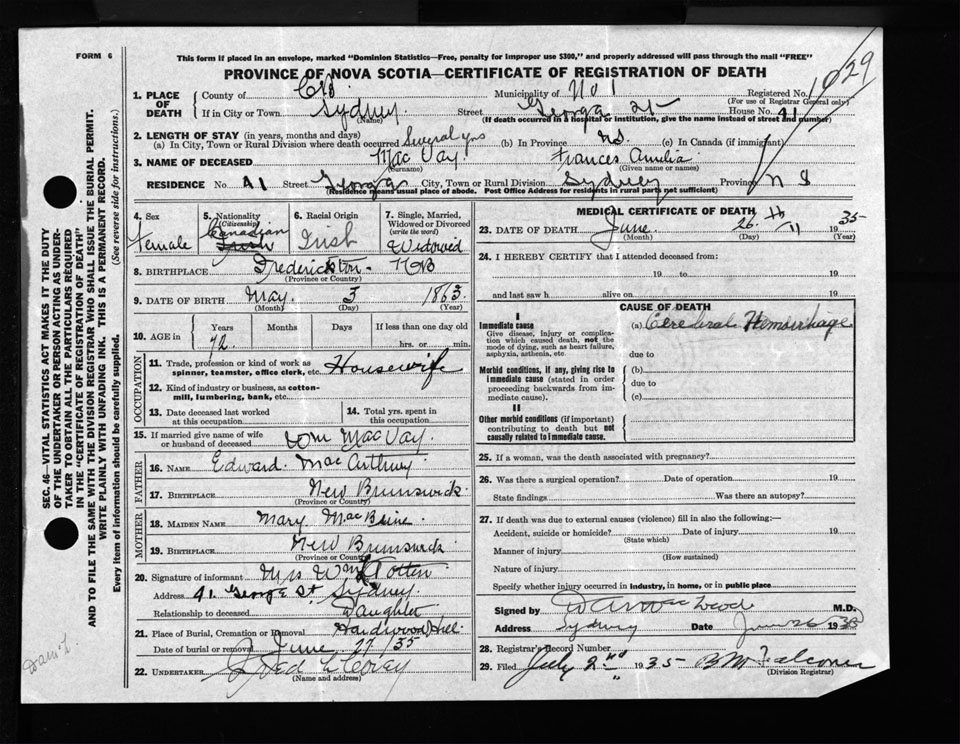 FORM 6
This form if placed in an envelope, marked "Dominion Statistics—Free, penalty for improper use $300," and properly addressed will pass through the mail "FREE"
PROVINCE OF NOVA SCOTIA—CERTIFICATE OF REGISTRATION OF DEATH
1029
1. PLACE OF DEATH
County of C B Municipality of No 1 Registered No.
(For use of Registrar General only)
If in City or Town Sydney Street George St House No. 41
(Name) (If death occurred in a hospital or institution, give the name instead of street and number)
2. LENGTH OF STAY (in years, months and days)
(a) In City, Town or Rural Division where death occurred Several yrs (b) In Province N.S. (c) In Canada (if immigrant)
3. NAME OF DECEASED Mac Vay Frances Amelia
(Surname) (Given name or names)
RESIDENCE No. 41 Street George City, Town or Rural Division Sydney Province N S
(Residence means usual place of abode. Post Office Address for residents in rural parts not sufficient)
4. Sex
female
5. Nationality (Citizenship)
Canadian
Irish
6. Racial Origin
Irish
7. Single, Married, Widowed or Divorced (write the word)
Widowed
8. BIRTHPLACE Fredericton - N B
(Province or Country)
9. DATE OF BIRTH May 3 1863
(Month) (Day) (Year)
10. AGE in Years Months Days If less than one day old
72 hrs. or min.
OCCUPATION
11. Trade, profession or kind of work as spinner, teamster, office clerk, etc. Housewife
12. Kind of industry or business, as cotton-mill, lumbering, bank, etc.
13. Date deceased last worked at this occupation
14. Total yrs. spent in this occupation
15. If married give name of wife or husband of deceased Wm MacVay.
FATHER
16. NAME Edward. Mac Arthur
17. BIRTHPLACE New Brunswick
(Province or Country)
MOTHER
18. MAIDEN NAME Mary MacBrine.
19. BIRTHPLACE New Brunswick
(Province or Country)
20. Signature of informant Mrs Wm Totten
Address 41 George St, Sydney
Relationship to deceased Daughter
21. Place of Burial, Cremation or Removal Hardwood Hill
Date of burial or removal June 27/35
22. UNDERTAKER
(Name and address)
MEDICAL CERTIFICATE OF DEATH
23. DATE OF DEATH June 26th 1935
(Month) (Day) (Year)
24. I HEREBY CERTIFY that I attended deceased from:
19 to 19
and last saw h alive on 19
CAUSE OF DEATH
I
Immediate cause
Give disease, injury or complication which caused death, not the mode of dying, such as heart failure, asphyxia, asthenia, etc.
(a) Cerebral Hemorrhage
due to
Morbid conditions, if any, giving rise to immediate cause (stated in order proceeding backwards from immediate cause).
(b)
due to
(c)
II
Other morbid conditions (if important) contributing to death but not causally related to immediate cause.
25. If a woman, was the death associated with pregnancy?
26. Was there a surgical operation? Date of operation 19
State findings Was there an autopsy?
27. If death was due to external causes (violence) fill in also the following:—
Accident, suicide or homicide? Date of injury 19
(State which)
Manner of injury
(How sustained)
Nature of injury
Specify whether injury occurred in industry, in home, or in public place
Signed by D A MacLeod M.D.
Address Sydney Date June 26 1935
28. Registrar's Record Number
29. Filed July 2nd 1935 B M Falconer
(Division Registrar)
SEC. 46—VITAL STATISTICS ACT MAKES IT THE DUTY
OF THE UNDERTAKER OR PERSON ACTING AS UNDER-
TAKER TO OBTAIN ALL THE PARTICULARS REQUIRED
IN THE "CERTIFICATE OF REGISTRATION OF DEATH"
AND TO FILE THE SAME WITH THE DIVISION REGISTRAR WHO SHALL ISSUE THE BURIAL PERMIT.
WRITE PLAINLY WITH UNFADING INK. THIS IS A PERMANENT RECORD.
Every item of information should be carefully supplied. (See reverse side for instructions.)